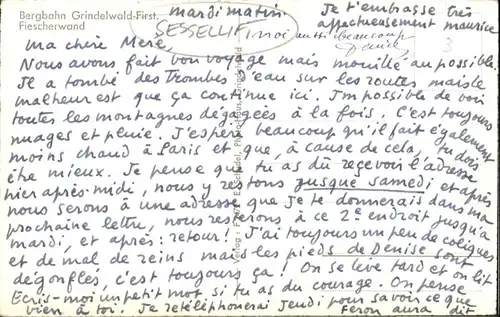 Bergbahn Grindelwald-First.
Fiescherwand
mardi matin
SESSELLIFT
Je t'embrasse très
affectueusement maurice
moi aussi beaucoup
Denise
3
ma chère Mere,
Nous avons fait bon voyage mais mouillé au possible.
Il a tombé des Trombes d'eau sur les routes mais le
malheur est que ça continue ici. Impossible de voir
toutes les montagnes dégagées à la fois. C'est toujours
nuages et pluie. J'espère beaucoup qu'il fait également
moins chaud à Paris et que, à cause de cela, tu dois
être mieux. Je pense que tu as dû recevoir l'adresse
hier après-midi, nous y restons jusque samedi et après
nous serons à une adresse que je te donnerais dans ma
prochaine lettre, nous resterons à ce 2e endroit jusqu'à
mardi, et après: retour! J'ai toujours un peu de coliques
et de mal de reins mais les pieds de Denise sont
dégonflés, c'est toujours ça! On se lève tard et on lit
Ecris-moi un petit mot si tu as du courage. On pense
bien à toi. Je retéléphonerai jeudi pour savoir ce que
Feron aura dit